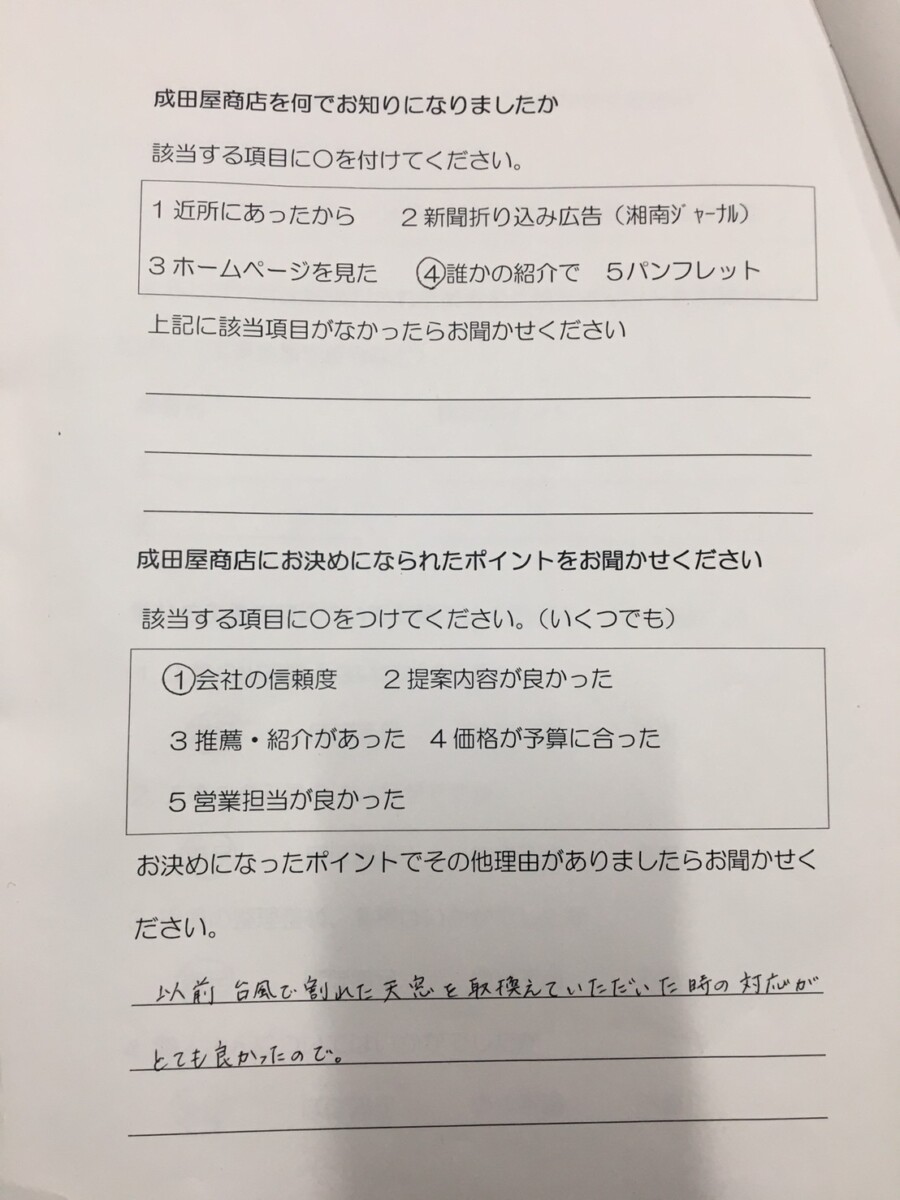 成田屋商店を何でお知りになりましたか
該当する項目に〇を付けてください。
1 近所にあったから 2 新聞折り込み広告（湘南ｼﾞｬｰﾅﾙ）
3 ホームページを見た ④誰かの紹介で 5パンフレット
上記に該当項目がなかったらお聞かせください
成田屋商店にお決めになられたポイントをお聞かせください
該当する項目に〇をつけてください。（いくつでも）
①会社の信頼度 2 提案内容が良かった
3 推薦・紹介があった 4 価格が予算に合った
5 営業担当が良かった
お決めになったポイントでその他理由がありましたらお聞かせく
ださい。
以前 台風で割れた天窓を取換えていただいた時の対応が
とても良かったので。